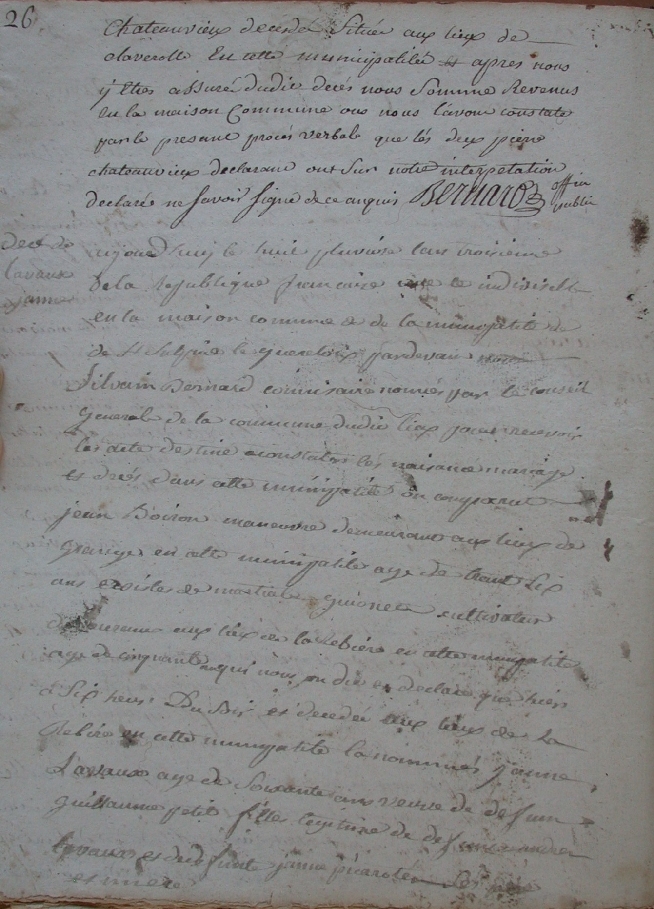 26
chateauvieux decedé Situee aux lieux de
claverolle En cette municipalité et apres nous
y Etres assuré dudit decés nous Somme Revenus
En la maison Commune ous nous l'avons constaté
par le present procés verbale que lés deux pierre
chateauvieux declarant ont Sur notre interpetation
declarée ne Savoir Signé de ce anquis Bernard offici
public
Decé de
lavaux
janne
aujourd huy le huit pluviose lans troisieme
de la Republique francaise une et indivisible
en la maison commune de la municipalité de
de St Sulpice par devant nous
Silvain Bernard commisaire nommés par le conseil
general de la commune dudit lieux pour recevoir
les acte destine a constater les naisance mariage
et decés dans cette municipalité on comparut
jean Boiron maneuvre demeurant aux lieux de
Grange en cette municipalité age de trant Six
ans et martial cultivateur
demeurant aux lieux de la Rebiere en cette municipalité
age de cinquante qui nous on dit et declaré que hier
a Six heure Du Soir est decedée aux lieux de la
Rebiere en cette municipalité la nommées janne
Lavaux age de Soixante ans veuve de defunt
Guillaume petit fille legitime de defunt andre
lavaux et defunte janne les pere
et mere